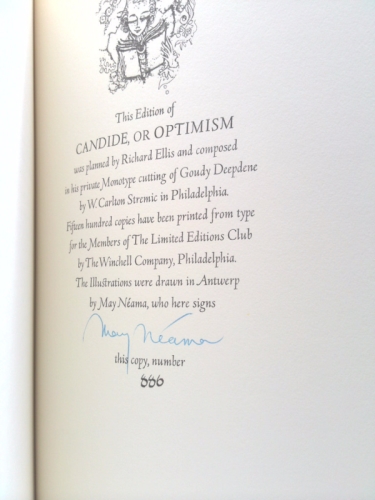 This Edition of
CANDIDE, OR OPTIMISM
was planned by Richard Ellis and composed
in his private Monotype cutting of Goudy Deepdene
by W. Carlton Stremic in Philadelphia.
Fifteen hundred copies have been printed from type
for the Members of The Limited Editions Club
by The Winchell Company, Philadelphia.
The Illustrations were drawn in Antwerp
by May Néama, who here signs
May Néama
this copy, number
886